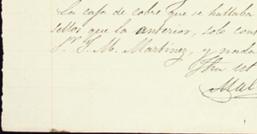 La caja de cobre que se hallaba
sellos que la anterior, solo cont
J. M. Martinez, y nada